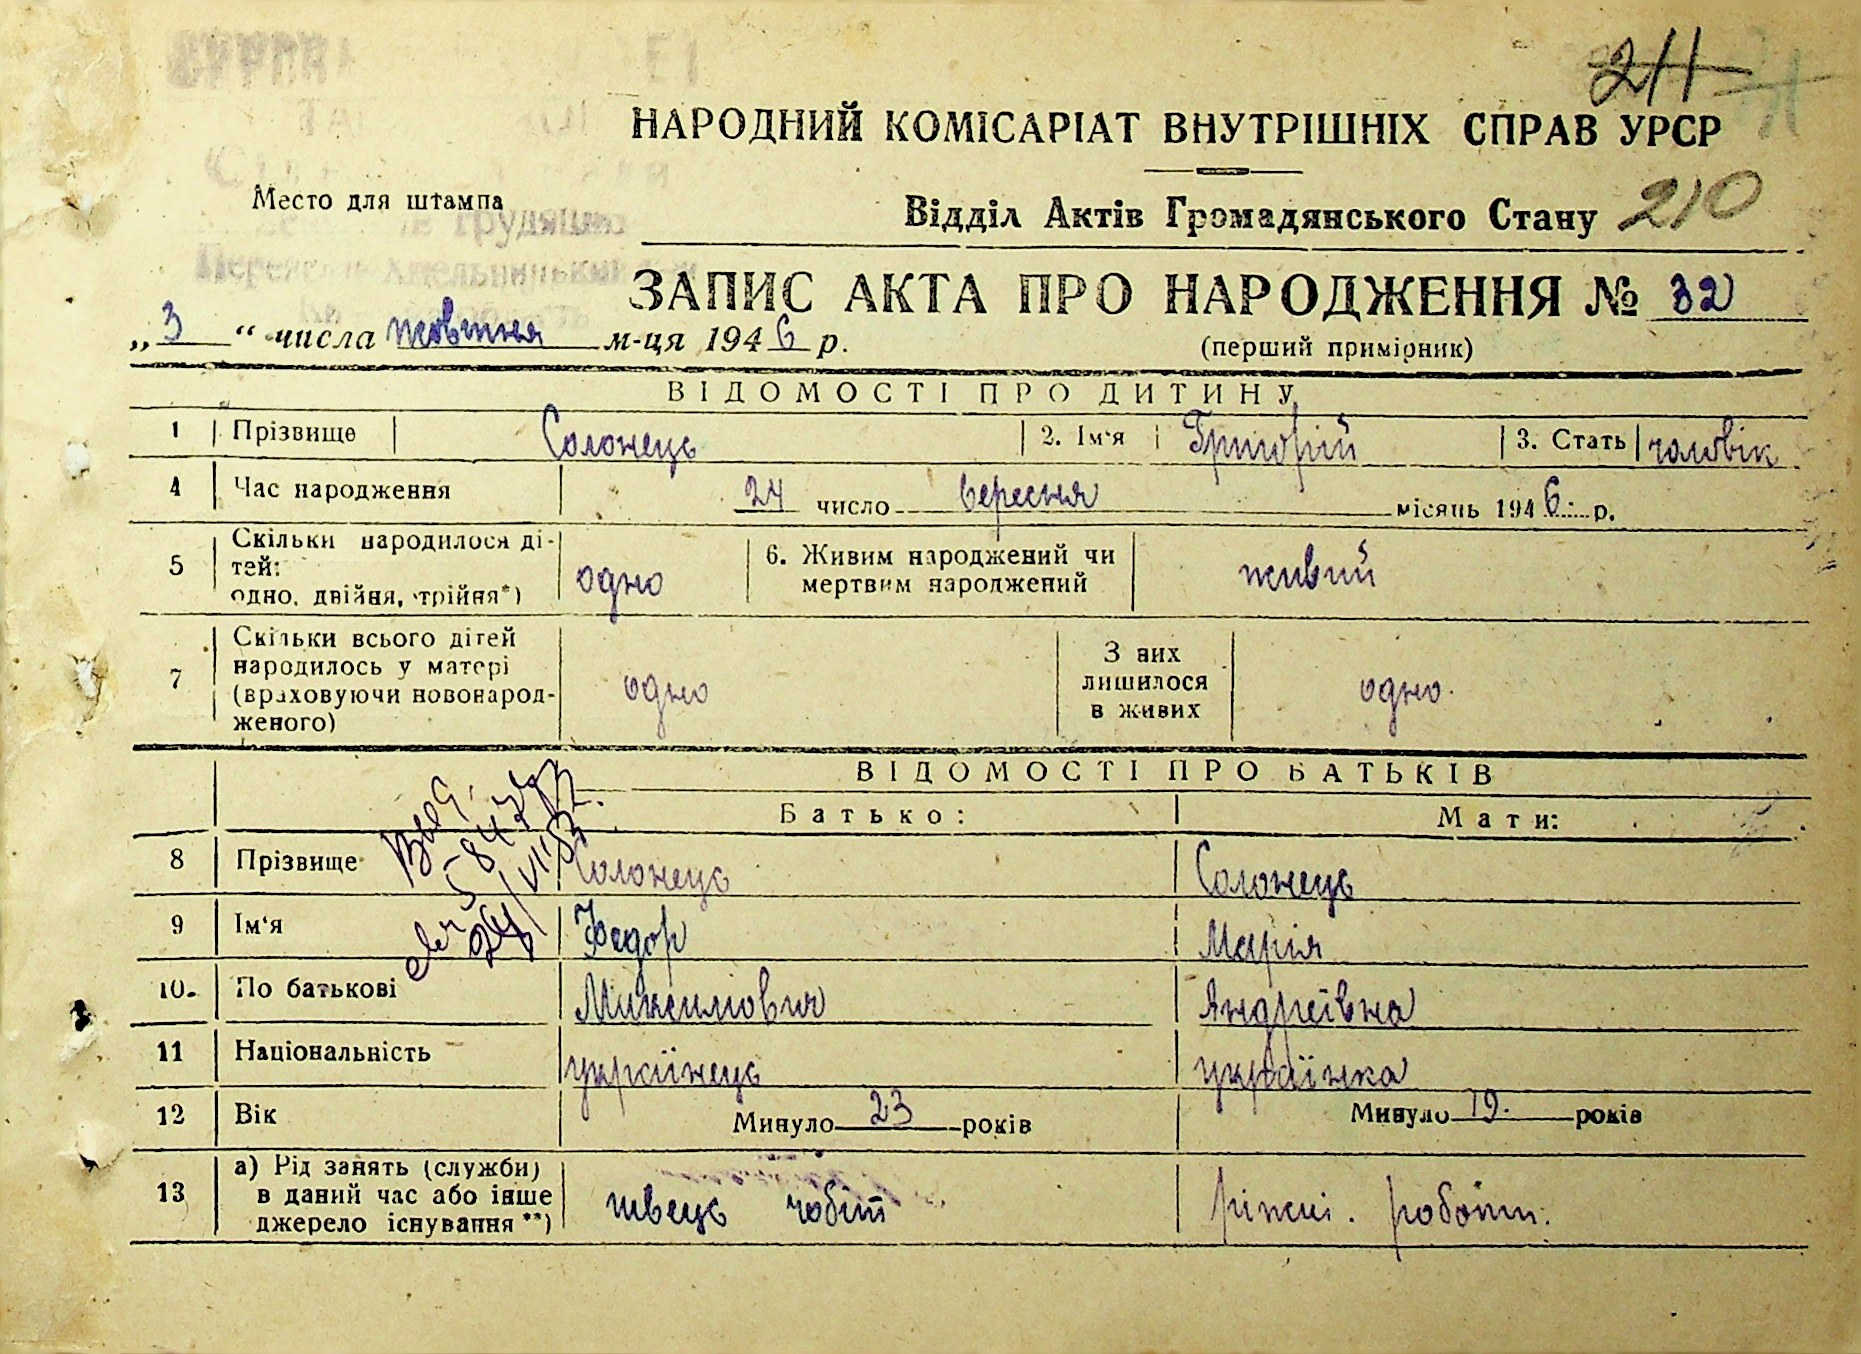 211
НАРОДНИЙ КОМІСАРІАТ ВНУТРІШНІХ СПРАВ УРСР
Место для штампа
Відділ Актів Громадянського Стану 210
ЗАПИС АКТА ПРО НАРОДЖЕННЯ № 32
„ 3 “ числа жовтня м-ця 1946 р.
(перший примірник)
ВІДОМОСТІ ПРО ДИТИНУ
1 Прізвище Солонець 2. Ім‘я Григорій 3. Стать чоловік
4 Час народження 24 число вересня місяць 1946 р.
5 Скільки народилося ді-
тей:
одно, двійня, трійня*) одно 6. Живим народжений чи
мертвим народжений живий
7 Скільки всього дітей
народилось у матері
(враховуючи новонарод-
женого) одно З них
лишилося
в живих одно
ВІДОМОСТІ ПРО БАТЬКІВ
Батько: Мати:
8 Прізвище Солонець Солонець
9 Ім‘я Федор Марія
10. По батькові Андреївна
11 Національність українець українка
12 Вік Минуло 23 років Минуло 19. років
13 а) Рід занять (служби)
в даний час або інше
джерело існування**) швець чобіт ріжні. роботи.